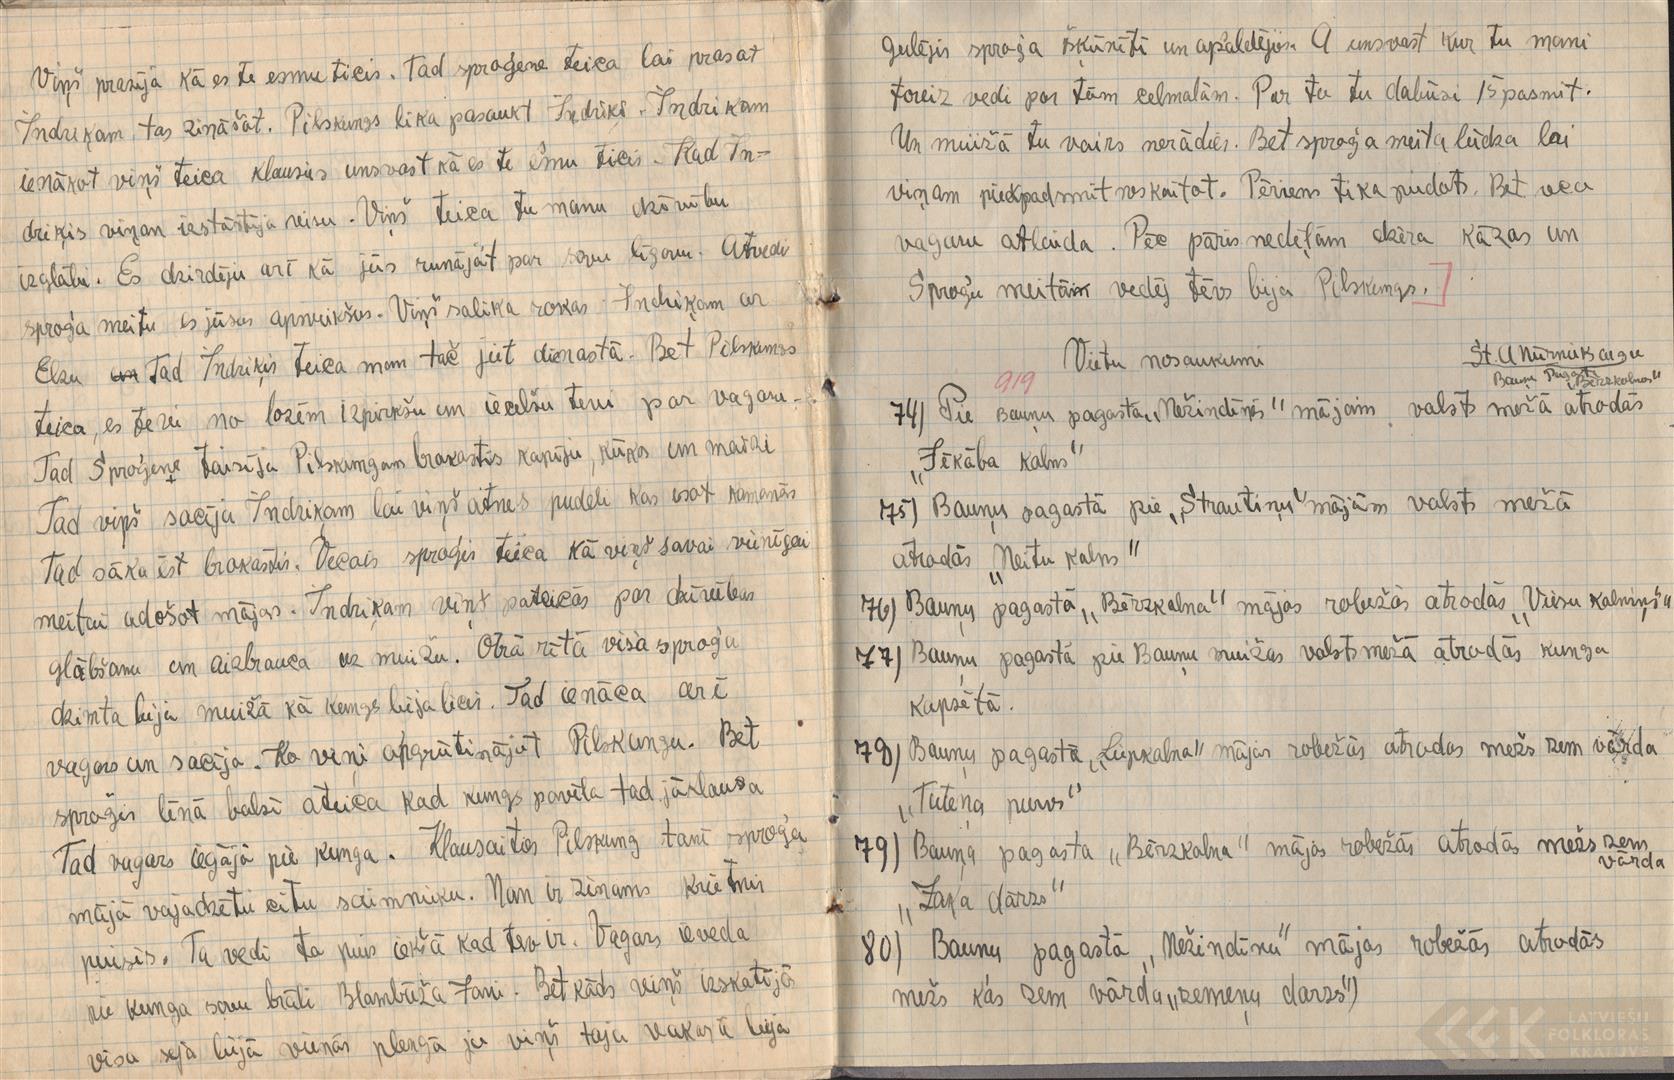 Viņš prasīja kā es te esmu ticis. Tad sproģene teica lai prasat
Indriķam, tas zināšot. Pilskungs lika pasaukt Indriķi. Indriķam
ienākot viņš teica klausies unsvast kā es te esmu ticis. Kad In=
driķis viņam izstāstīja visu. Viņš teica tu manu dzīvību
izglābi. Es dzirdēju arī kā jūs runājāt par savu līgavu. Atvedi
sproģa meitu es jūsus apsveikšus. Viņš salika rokas Indriķam ar
Elzu Tad Indriķis teica man tač jāit dienastā. Bet Pilskungs
teica, es tevi no lozēm izpirkšu un iecelšu tevi par vagaru.
Tad Sproģene taisīja Pilskungam brokastis kapiju, kūkas un maizi
Tad viņš sacīja Indriķam lai viņš atnes pudeli kas esot kamanās
Tad sāka ēst brokastis. Vecais sproģis teica kā viņš savai vienīgai
meitai adošot mājas. Indriķam viņš pateicās par dzīvības
glābšanu un aizbrauca uz muižu. Otrā rītā visa sproģu
dzimta bija muižā kā kungs bija licis. Tad ienāca arī
vagars un sacīja. Ko viņi apgrūtinājāt Pilskungu. Bet
sproģis lēnā balsī ateica kad kungs pavēla tad jāklausa
Tad vagars iegājā pie kunga. Klausaities Pilskung tanī sproģa
mājā vajadzētu citu saimnieku. Man ir zinams krietnis
puisis. Ta vedi to puis iekšā kad tev ir. Vagars ieveda
pie kunga savu brāli Blambūža Jani. Bet kāds viņš izskatījās
visa seja bijā vienās plengā jo viņš tajā vakarā bija
gulējis sproģa šķūnītī un apsaldējies. A unsvast kur tu mani
toreiz vedi par tām celmalām. Par to tu dabūsi 15 pasmit.
Un muižā tu vairs nerādies. Bet sproģa meita lūdza lai
viņam piecpadsmit noskaitot. Pēriens tika piedots. Bet veca
vagaru atlaida. Pēc pāris nedeļām dzēra kāzas un
Sproģu meitām vedēj tēvs bija Pilskungs.]
Vietu nosaukumi
St. A Nūrmiks audu
Bauņu Pagasts
"Bērzkalnos"
919
74) Pie Bauņu pagasta "Mežindēnes" mājam valsts mežā atrodās
"Jēkāba kalns"
75) Bauņu pagastā pie "Strautiņu" mājām valsts mežā
atrodās "Meitu kalns"
76) Bauņu pagastā "Bērzkalna" mājas robežās atrodās "Viesu kalniņš"
77) Bauņu pagastā pie Bauņu muižas valsts mežā atrodās kunga
kapsētā.
78) Bauņu pagastā "Liepkalna" mājas robežās atrodas mežs zem vārda
"Tuteņa purvs"
79) Bauņa pagasta "Bērzkalna" mājas robežās atrodās mežs zem
vārda
"Zaķa dārzs"
80) Bauņu pagastā "Mežindēnu" mājas robežās atrodās
mežs kas zem vārda "zemeņu darzs")
LATVIEŠU
FOLKLORAS
KRĀTUVE